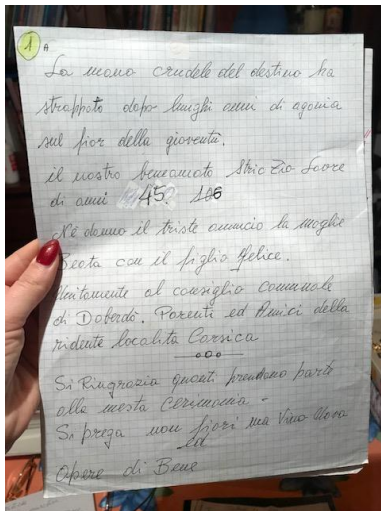 1 A
La mano crudele del destino ha
strappato dopo lunghi anni di agonia
sul fior della gioventù.
il nostro beneamato Stric Zio Score
di anni 45? 106
Ne danno il triste annuncio la moglie
Beota con il figlio Felice.
Unitamente al consiglio comunale
di Doberdi. Parenti ed Amici della
ridente località Carsica
Si Ringrazia quanti prendono parte
alla mesta Cerimonia -
Si prega non fiori ma Vino Uova
ed
Opere di Bene